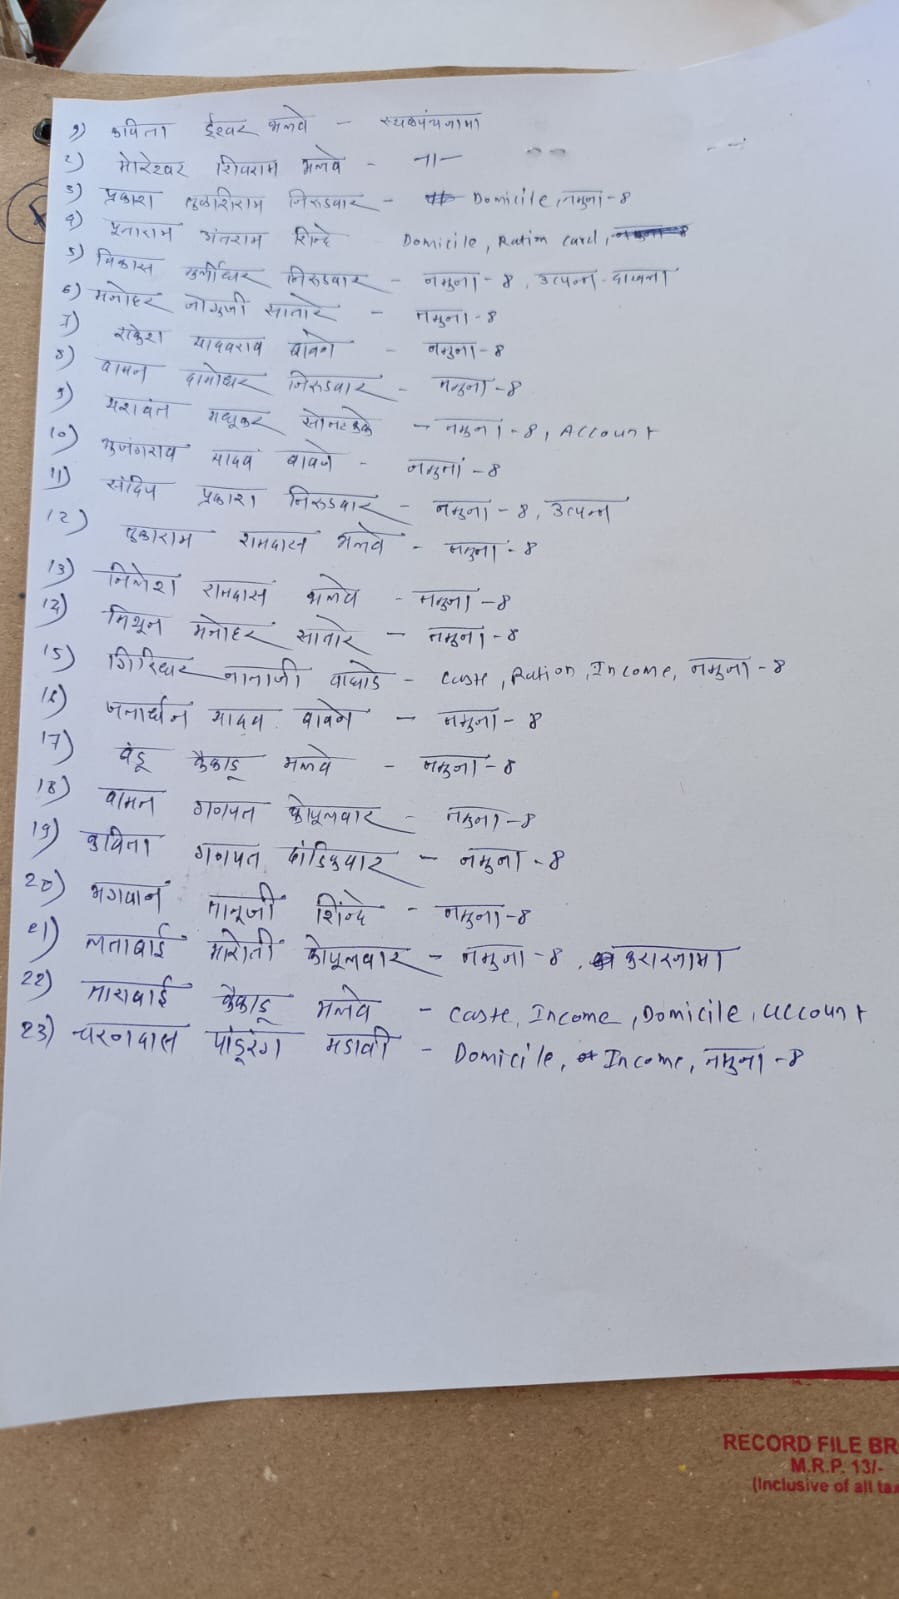 १) कविता ईश्वर भलवे - स्थळपंचनामा
२) मोरेश्वर शिवराम भलवे - -॥-
३) प्रकाश तुकाराम निरुडवार - Domicile, नमुना-8
४) अंतराम शिन्दे Domicile, Ration Card, नमुना-8
५) विकास मुर्लीधर निरुडवार - नमुना-8, उत्पन्न-दाखला
६) मनोहर जोगुजी सातारे - नमुना-8
7) राकेश यादवराव वावणे - नमुना-8
8) वामन दामोधर निरुडवार - नमुना-8
9) यशवंत मधुकर सोनटक्के - नमुना-8, Account
10) भुजंगराव यादव वावणे - नमुना-8
11) संदिप प्रकाश निरुडवार - नमुना-8, उत्पन्न
12) तुकाराम रामदास भलवे - नमुना-8
13) निलेश रामदास भलवे - नमुना-8
14) मिथून मनोहर सातारे - नमुना-8
15) गिरिधर नानाजी वाघाडे - Caste, Ration, Income, नमुना-8
16) जनार्धन यादव वावणे - नमुना-8
17) बंडू कैकाडू भलवे - नमुना-8
18) वामन गणपत कोपूलवार - नमुना-8
19) कविता गणपत दांडिकवार - नमुना-8
20) भगवान मानूजी शिंन्दे - नमुना-8
21) लताबाई मारोती कोपूलवार - नमुना-8, करारनामा
22) ताराबाई कैकाडू भलवे - Caste, Income, Domicile, Account
23) चरणदास पांडूरंग मडावी - Domicile, Income, नमुना-8
RECORD FILE BR
M.R.P. 13/-
(Inclusive of all ta